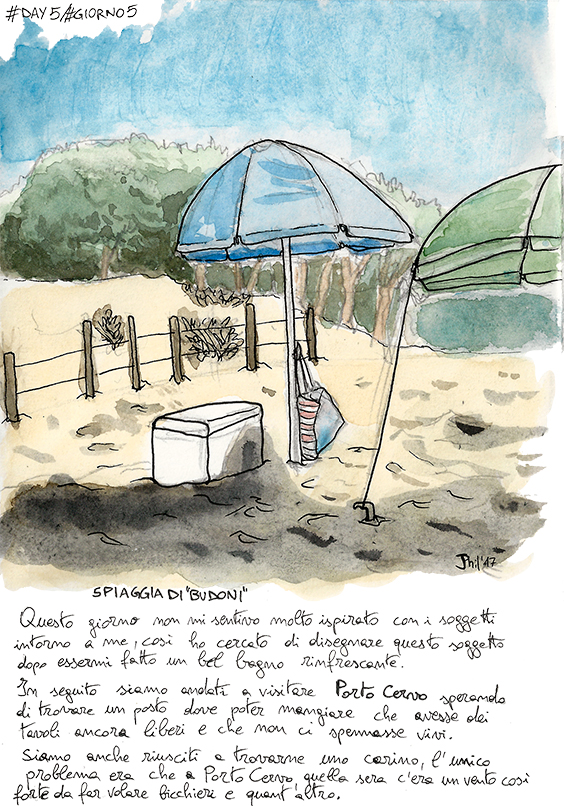 #DAY5/#GIORNO5
Phil'17
SPIAGGIA DI "BUDONI"
Questo giorno non mi sentivo molto ispirato con i soggetti
intorno a me, così ho cercato di disegnare questo soggetto
dopo essermi fatto un bel bagno rinfrescante.
In seguito siamo andati a visitare Porto Cervo sperando
di trovare un posto dove poter mangiare che avesse dei
tavoli ancora liberi e che non ci spennasse vivi.
Siamo anche riusciti a trovarne uno carino, l'unico
problema era che a Porto Cervo quella sera c'era un vento così
forte da far volare bicchieri e quant'altro.